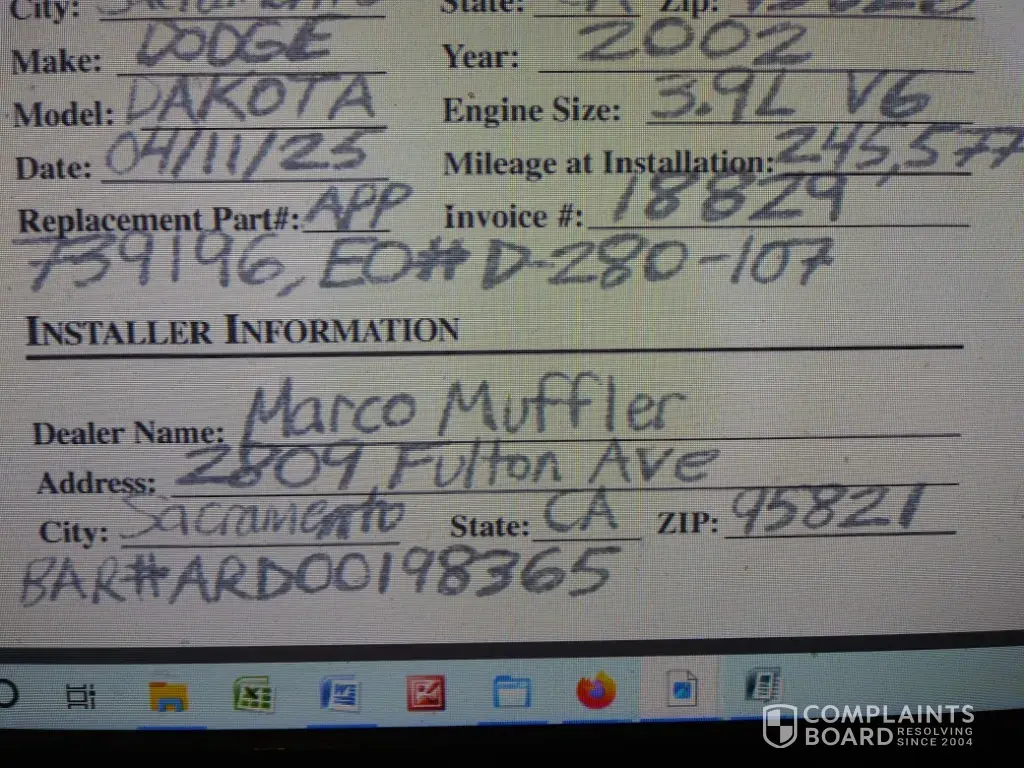 City: Sacramento State: CA Zip:
Make: DODGE Year: 2002
Model: DAKOTA Engine Size: 3.9L V6
Date: 04/11/25 Mileage at Installation: 245,577
Replacement Part#: APP Invoice #: 18829
739196, EO# D-280-107
INSTALLER INFORMATION
Dealer Name: Marco Muffler
Address: 2809 Fulton Ave
City: Sacramento State: CA ZIP: 95821
BAR#ARD00198365
COMPLAINTS
BOARD RESOLVING
SINCE 2004